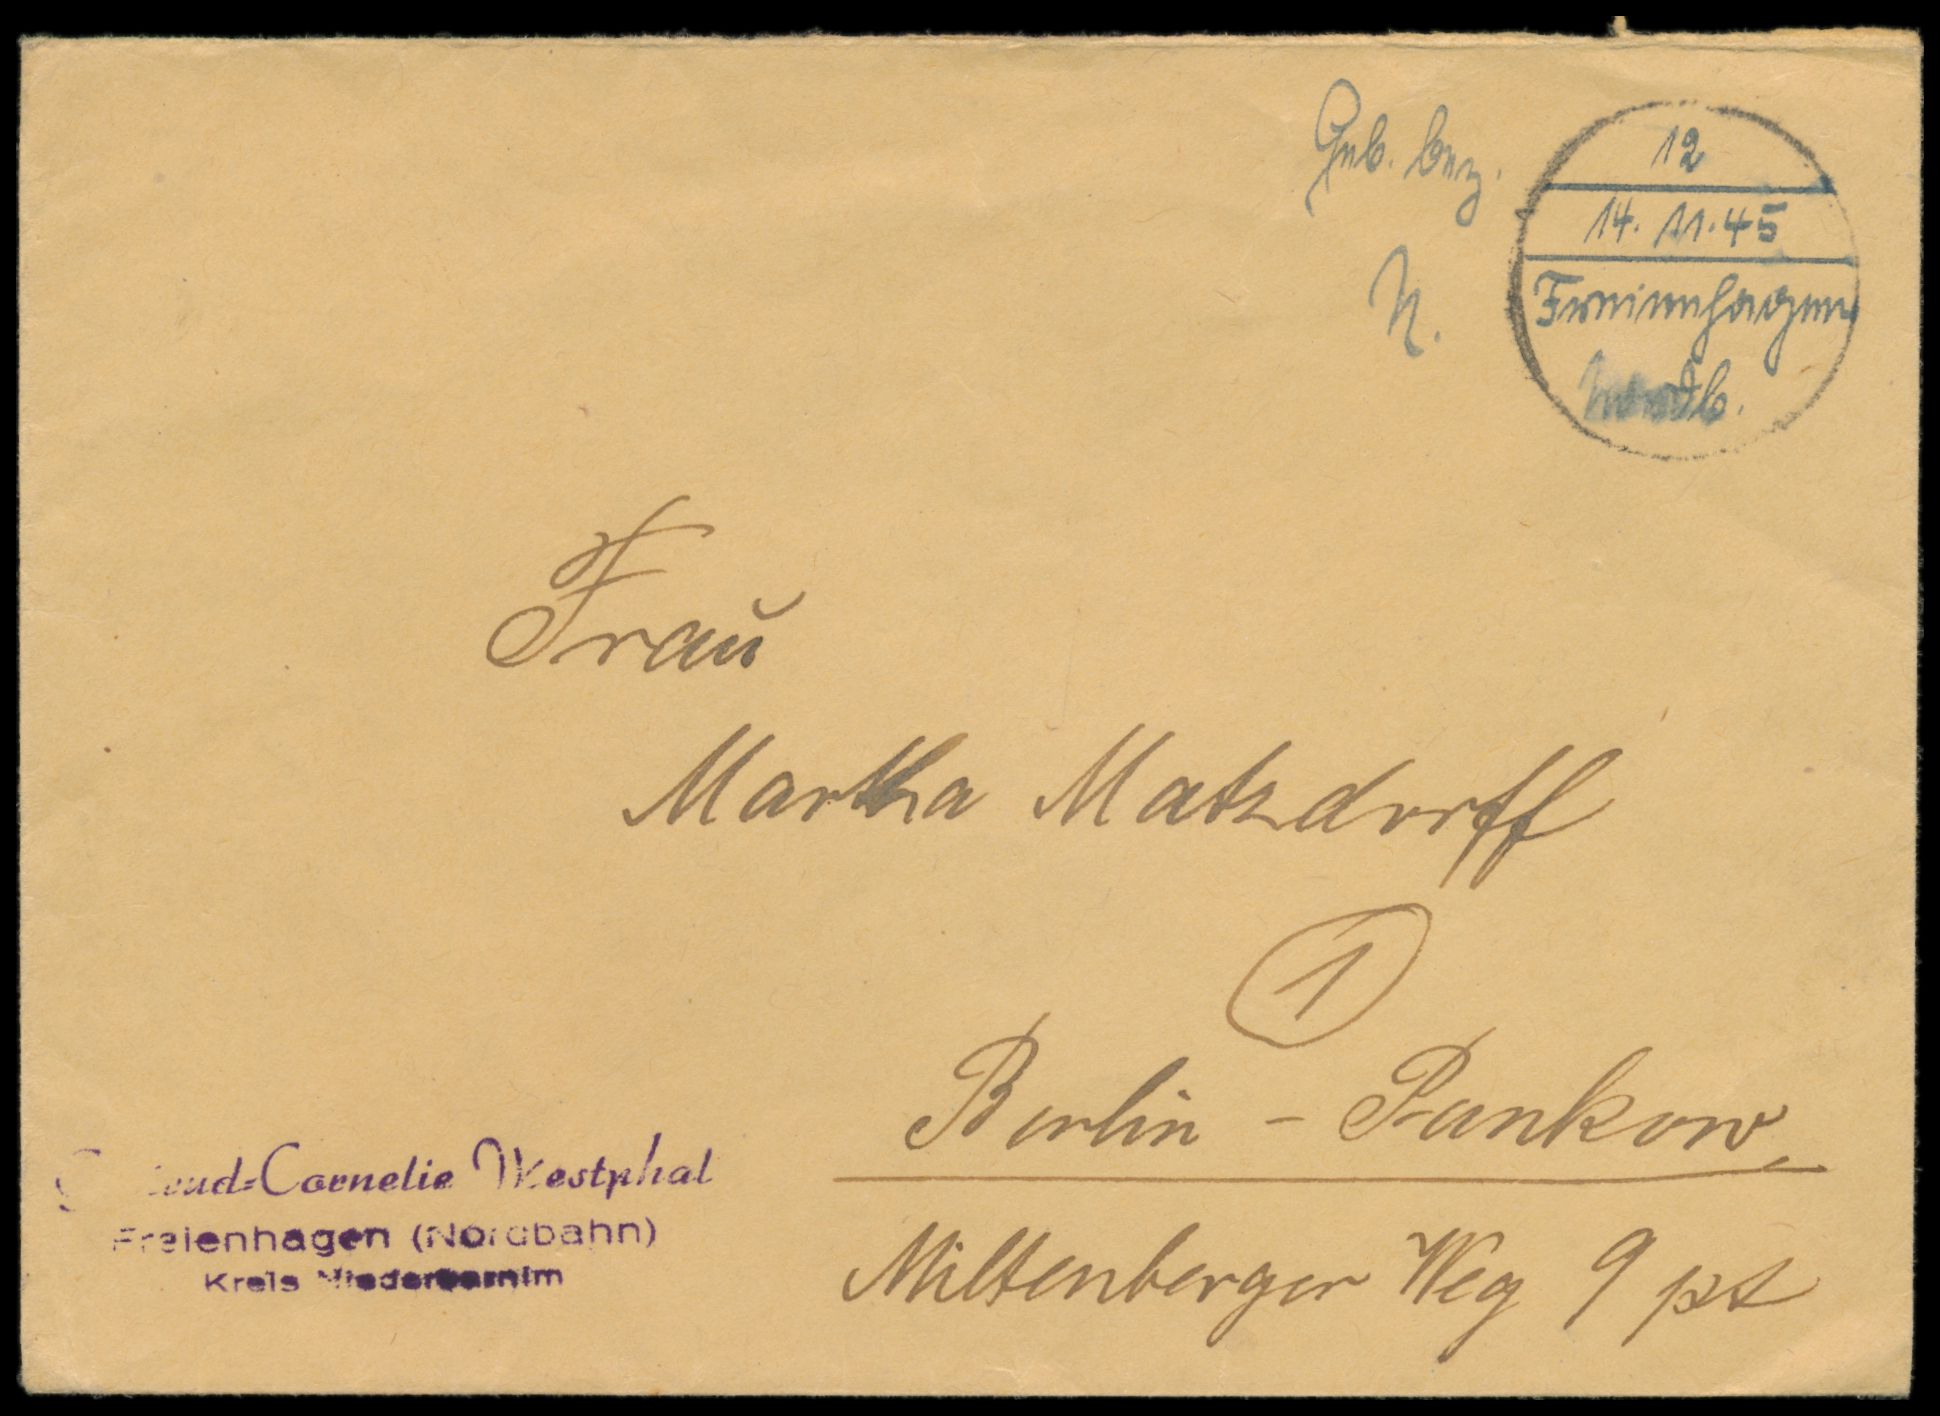 Geb. bez.
N.
12
14.11.45
Freienhagen
Nordb.
Frau
Martha Matzdorff
1
Berlin - Pankow
Miltenberger Weg 9 pt
Cornelie Westphal
Freienhagen (Nordbahn)
Kreis Niederbarnim